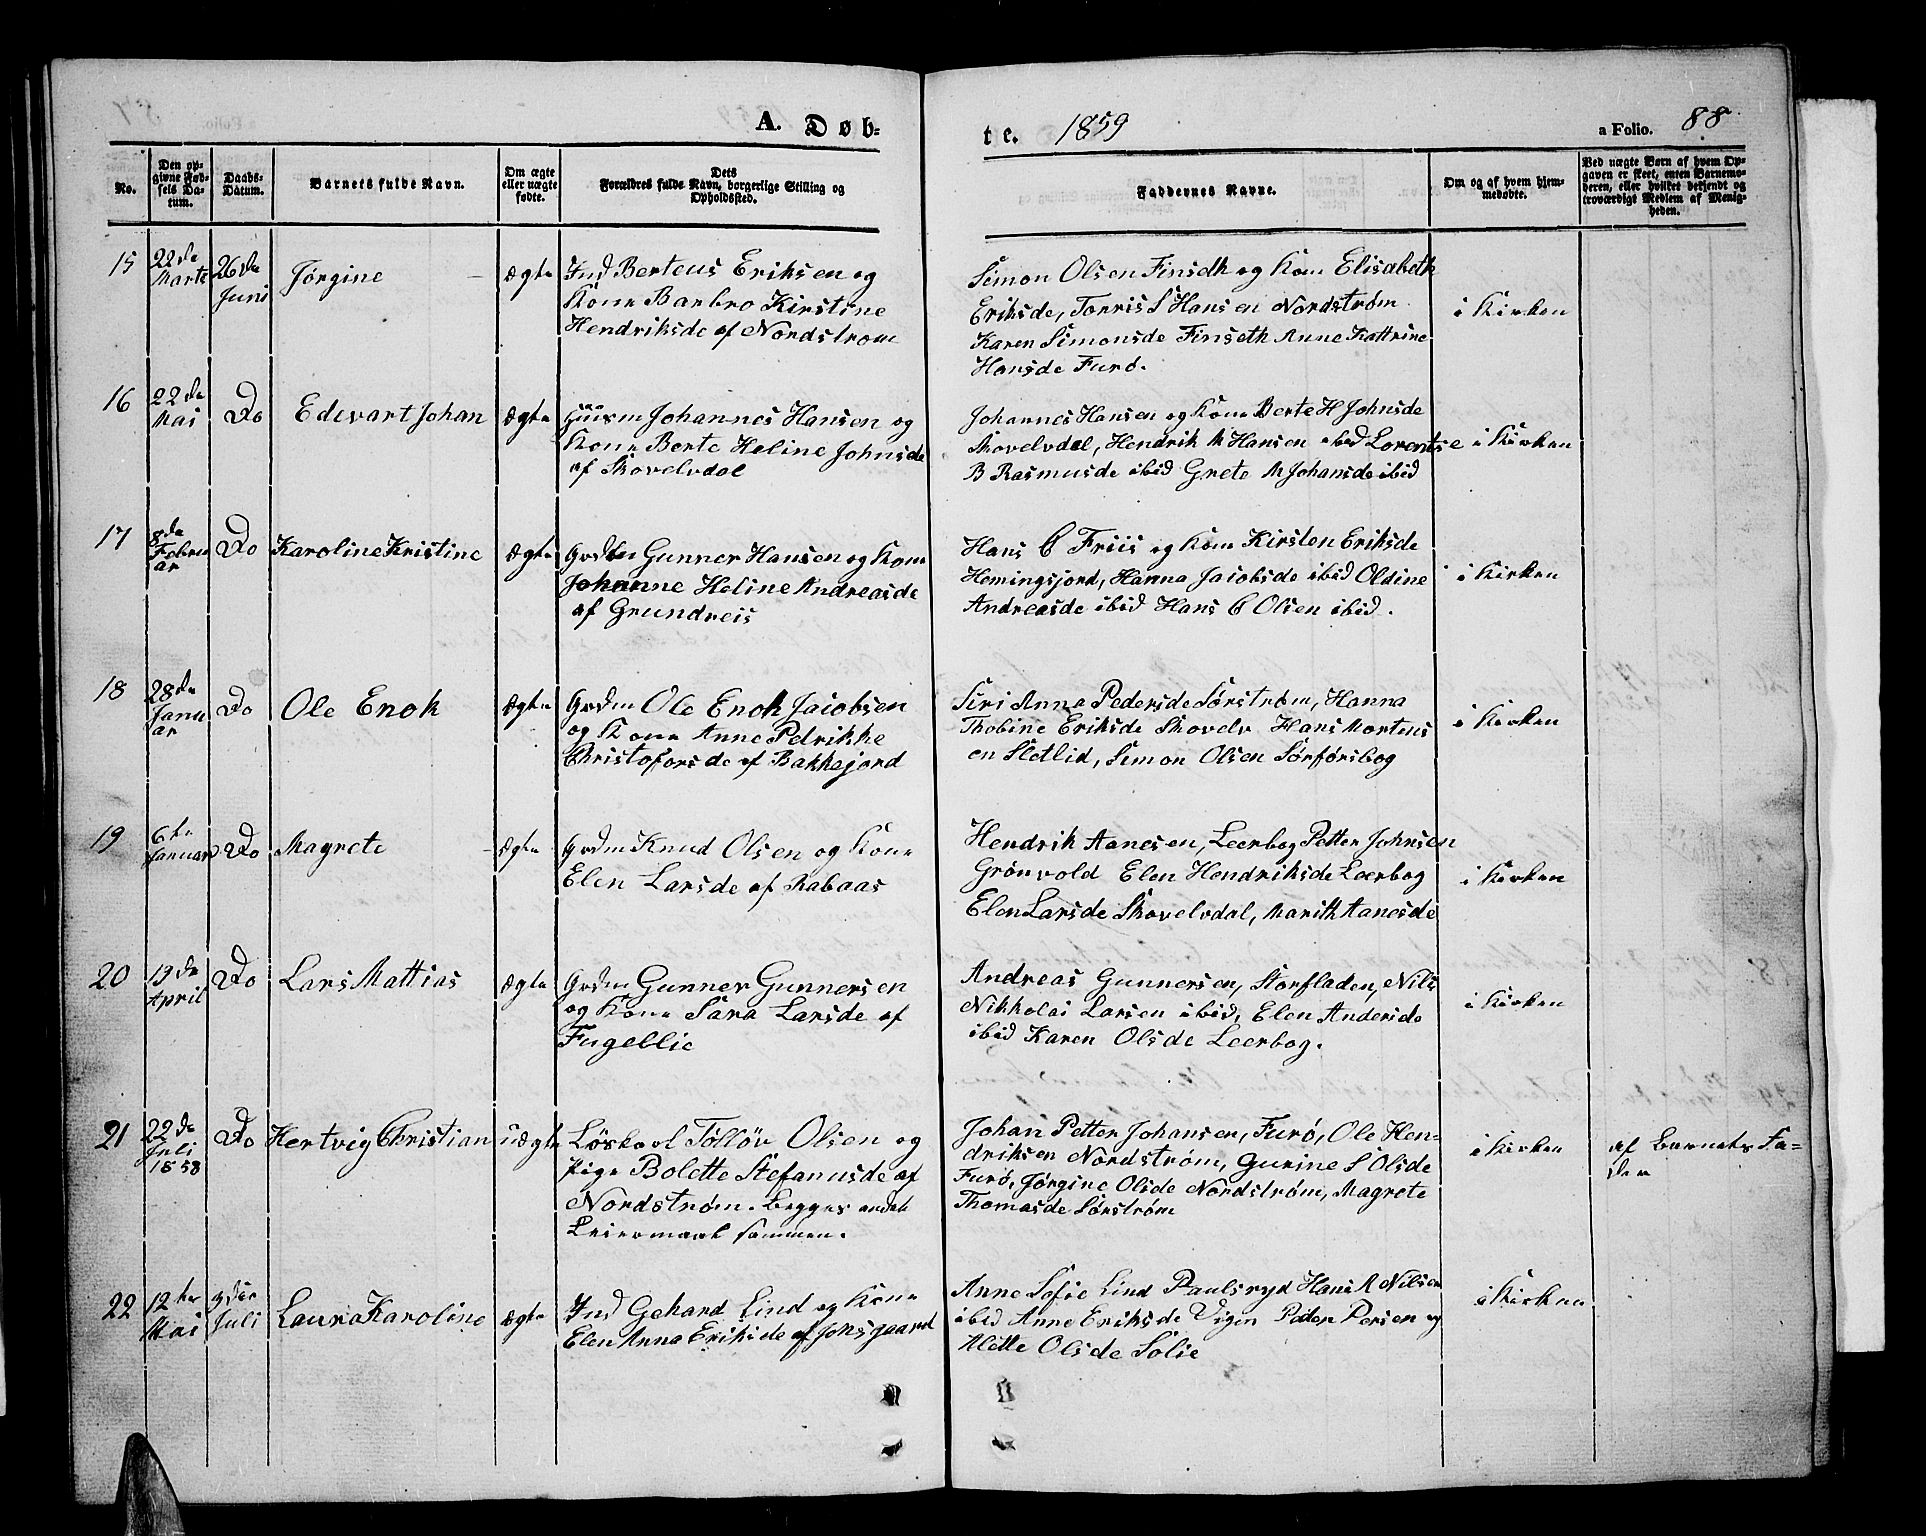 A. Døb-
te. 1859
a Folio. 88.
No.
Den op-
givne Fød-
sels Da-
tum.
Daabs-
Datum.
Barnets fulde Navn.
Om ægte
eller uægte
fødte.
Dets
Forældres fulde Navn, borgerlige Stilling og
Opholdssted.
Faddernes Navne.
Om og af hvem hjem-
medøbte.
Ved uægte Børn af hvem Op-
gaven er skeet, enten Barnemo-
deren, eller hvilket bekjendt og
troværdigt Medlem af Menig-
heden.
15
22de
Marts
26de
Juni
Jørgine
Ægte
Ind Berteus Eriksen og
Kone Barbro Kirstine
Hendriksde af Nordstrøm
Simon Olsen Finsdh og Kone Elisabeth
Eriksde, Torris S Hansen Nordstrøm
Karen Simonsde Finseth Anne Kattrine
Hansde Furö.
i Kirken
16
22de
Mai
Do
Edevart Johan
Ægte
Huusm Johannes Hansen og
Kone Berte Heline Johnsde
af Skovelvdal
Johannes Hansen og Kone Berte H Johnsde
Skovelvdal, Hendrik M Hansen ibid Lorentse
B Rasmusde ibid Grete M Johansde ibid
i Kirken
17
8de
Febru
ar
Do
Karoline Kristine
Ægte
Grdm Gunner Hansen og Kone
Johanne Heline Andreasde
af Grundreis
Hans C Friis og Kone Kirsten Eriksde
Hemingsjord, Hanna Jacobsde ibid Oldine
Andreasde ibid Hans C Olsen ibid.
i Kirken
18
28de
Janu
ar
Do
Ole Enok
Ægte
Grdm Ole Enok Jacobsen
og Kone Anne Pedrikke
Christoforsde af Bakkejord
Siri Anna Pedersde Sørstrøm, Hanna
Thobine Eriksde Skovelv Hans Mortens
en Sletlid, Simon Olsen Sørførsbog
i Kirken
19
6te
Januar
Do
Magrete
Ægte
Grdm Knud Olsen og Kone
Elen Larsde af Rabaas
Hendrik Aanesen, Leerbog Petter Johnsen
Grönvold Elen Hendriksde Leerbog
Elen Larsde Skovelvdal, Marith Aanesde
i Kirken
20
19de
April
Do
Lars Mattias
Ægte
Grdm Gunner Gunnersen
og Kone Sara Larsde af
Fugellie
Andreas Gunnersen, Storfladen, Nils
Nikkolai Larsen ibid, Elen Andersde
ibid Karen Olsde Leerbog.
i Kirken
21
22de
Juli
1858
Do
Hertvig Christian
uægte
Løskarl Tölløv Olsen og
Pige Bolette Stefanusde af
Nordstrøm. Begges andet
Leiermaal sammen.
Johan Petter Johansen, Furö, Ole Hen-
driksen Nordstrøm, Gurine S Olsde
Furö, Jørgine Olsde Nordstrøm, Magrete
Thomasde Sørstrøm
i Kirken
af Barnets Fa-
der
22
12te
Mai
Juli
Laura Karoline
Ægte
Ind Gehard Lind og Kone
Elen Anna Eriksde af Jonsgaard
Anne Sofie Lind Paulsryd Hans A Nilsen
ibid Anne Eriksde Vigen Peder Persen og
Alette Olsde Solie
i Kirken